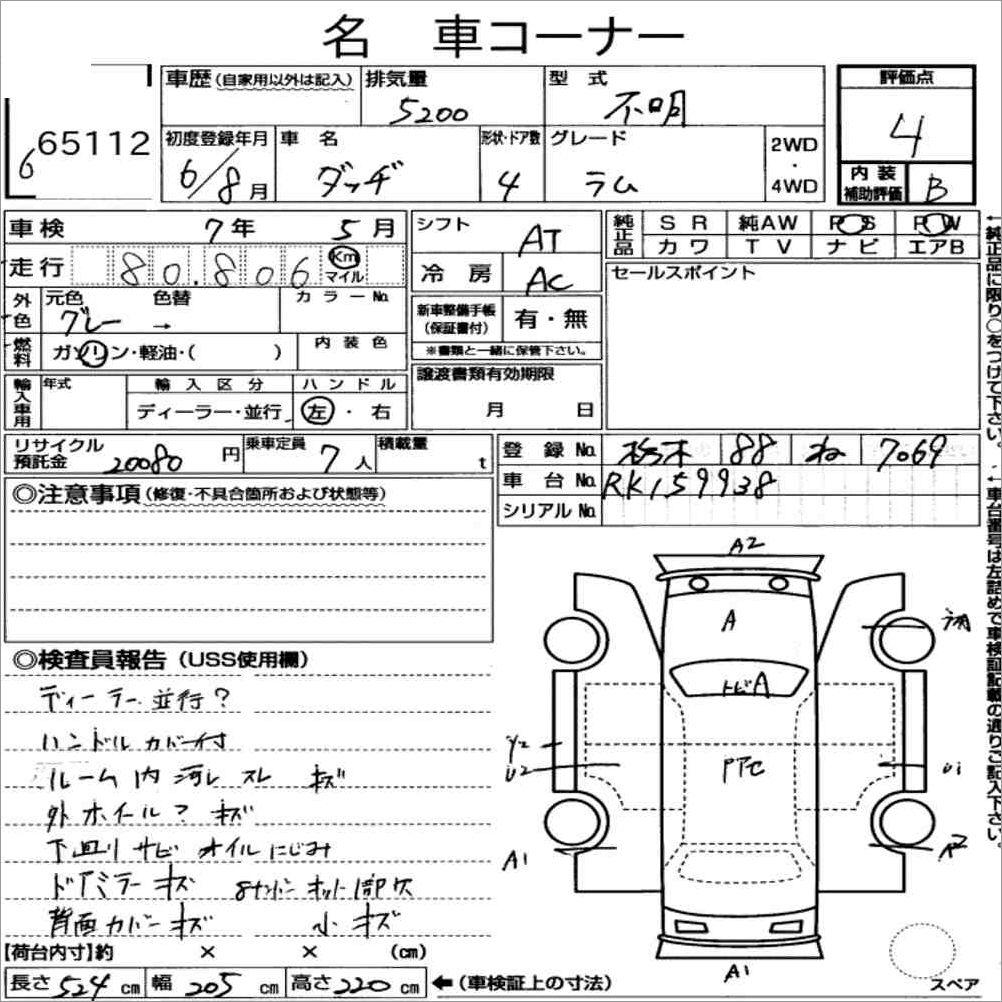 名 車コーナー
665112
車歴 (自家用以外は記入) 排気量 5200
型 式 不明
評価点 4
初度登録年月 6/8月
車 名 ダッヂ
形状・ドア数 4
グレード ラム
2WD・4WD
内 装 補助評価 B
車検 7年 5月
走行 80.806 Km マイル
シフト AT
冷 房 AC
純正品 SR 純AW PS PW
カワ TV ナビ エアB
セールスポイント
外色 元色 グレー → 色替 カラーNo.
燃料 ガソリン・軽油・( ) 内 装 色
新車整備手帳 (保証書付) 有・無
※書類と一緒に保管下さい。
輸入車用 年式 輸 入 区 分 ハ ン ド ル
ディーラー・並行 左・右
譲渡書類有効期限
月 日
リサイクル預託金 20080円 乗車定員 7人 積載量 t
登 録 No. 栃木 88 ね 7069
車 台 No. RK159938
シリアル No.
←純正品に限り○をつけて下さい。
←車台番号は左詰めで車検証記載の通りご記入下さい。
◎注意事項 (修復・不具合箇所および状態等)
◎検査員報告 (USS使用欄)
ディーラー並行?
ハンドルカバー付
ルーム内 スレ キズ
外ホイール? キズ
下回りサビ オイルにじみ
ドアミラーキズ
背面カバーキズ 小キズ
A2
A
トビA
Y2
U2
U1
A1
A2
A1
スペア
【荷台内寸】約 × × (cm)
長さ 524 cm 幅 205 cm 高さ 220 cm ←(車検証上の寸法)